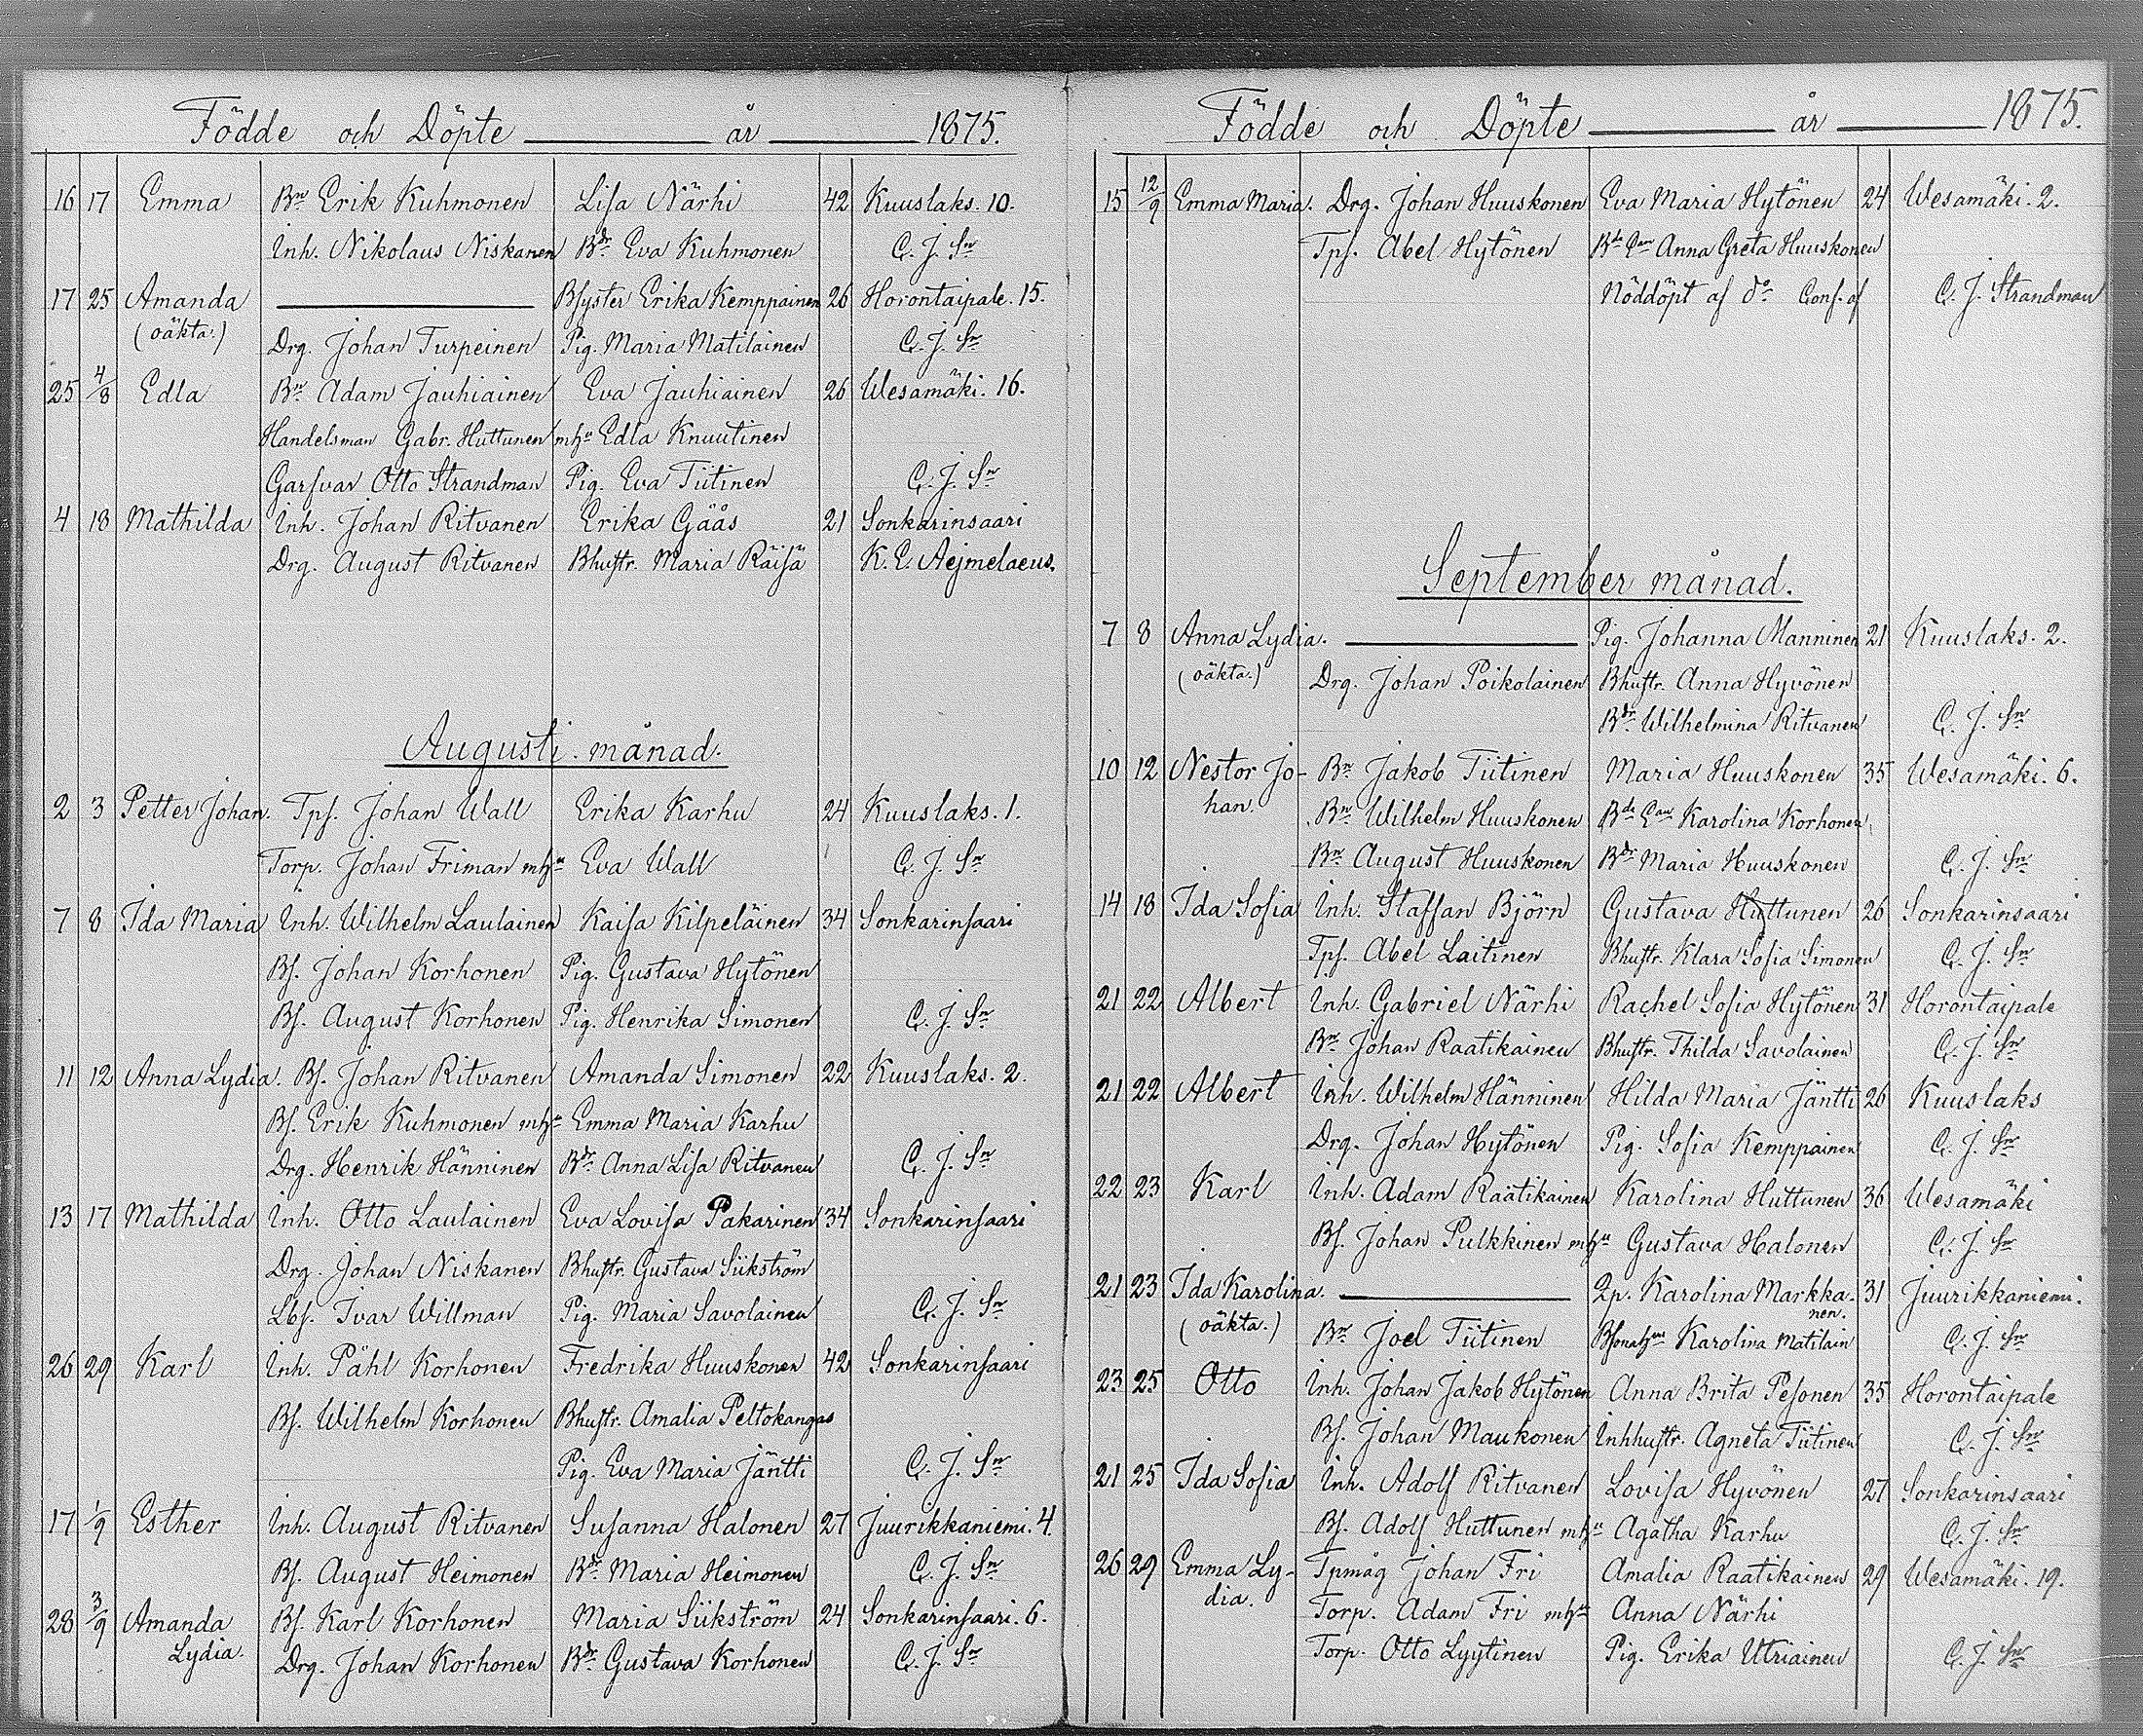 Födde och Döpte år 1875.
16 17 Emma Bn Erik Kuhmonen Lisa Närhi 42 Kuuslaks. 10.
Inh. Nikolaus Niskanen Bdr Eva Kuhmonen C. J. Sn
17 25 Amanda Bsyster Erika Kemppainen 26 Horontaipale. 15.
(oäkta.) Drg. Johan Turpeinen Pig. Maria Matilainen C. J. Sn
25 4/8 Edla Bn Adam Jauhiainen Eva Jauhiainen 26 Wesamäki. 16.
Handelsman Gabr. Huttunen mhu Edla Knuutinen
Garfvar Otto Strandman Pig. Eva Tiitinen C. J. Sn
4 18 Mathilda Inh. Johan Ritvanen Erika Gåås 21 Sonkarinsaari
Drg. August Ritvanen Bhustr. Maria Räisä K. E. Aejmelaeus.
Augusti månad.
2 3 Petter Johan. Tps. Johan Wall Erika Karhu 24 Kuuslaks. 1.
Torp. Johan Friman mhu Eva Wall C. J. Sn
7 8 Ida Maria Inh. Wilhelm Laulainen Kaisa Kilpeläinen 34 Sonkarinsaari
Bs. Johan Korhonen Pig. Gustava Hytönen
Bs. August Korhonen Pig. Henrika Simonen C. J. Sn
11 12 Anna Lydia. Bs. Johan Ritvanen Amanda Simonen 22 Kuuslaks. 2.
Bs. Erik Kuhmonen mhu Emma Maria Karhu
Drg. Henrik Hänninen Bdr Anna Lisa Ritvanen C. J. Sn
13 17 Mathilda Inh. Otto Laulainen Eva Lovisa Pakarinen 34 Sonkarinsaari
Drg. Johan Niskanen Bhustr. Gustava Siikström
Lbs. Ivar Willman Pig. Maria Savolainen C. J. Sn
26 29 Karl Inh. Påhl Korhonen Fredrika Huuskonen 42 Sonkarinsaari
Bs. Wilhelm Korhonen Bhustr. Amalia Peltokangas
Pig. Eva Maria Jäntti C. J. Sn
17 1/9 Esther Inh. August Ritvanen Susanna Halonen 27 Juurikkaniemi. 4.
Bs. August Heimonen Bdr Maria Heimonen C. J. Sn
28 3/9 Amanda Bs. Karl Korhonen Maria Siikström 24 Sonkarinsaari. 6.
Lydia. Drg. Johan Korhonen Bdr Gustava Korhonen C. J. Sn
Födde och Döpte år 1875.
15 12/9 Emma Maria. Drg. Johan Huuskonen Eva Maria Hytönen 24 Wesamäki. 2.
Tps. Abel Hytönen Bde Ean Anna Greta Huuskonen
Nöddöpt af do Conf. af C. J. Strandman
September månad.
7 8 Anna Lydia. Pig. Johanna Manninen 21 Kuuslaks. 2.
(oäkta.) Drg. Johan Poikolainen Bhustr. Anna Hyvönen
Bdr Wilhelmina Ritvanen C. J. Sn
10 12 Nestor Jo- Bn Jakob Tiitinen Maria Huuskonen 35 Wesamäki. 6.
han. Bn Wilhelm Huuskonen Bde Ean Karolina Korhonen
Bn August Huuskonen Bdr Maria Huuskonen C. J. Sn
14 18 Ida Sofia Inh. Staffan Björn Gustava Huttunen 26 Sonkarinsaari
Tps. Abel Laitinen Bhustr. Klara Sofia Simonen C. J. Sn
21 22 Albert Inh. Gabriel Närhi Rachel Sofia Hytönen 31 Horontaipale
Bn Johan Raatikainen Bhustr. Thilda Savolainen C. J. Sn
21 22 Albert Inh. Wilhelm Hänninen Hilda Maria Jäntti 26 Kuuslaks
Drg. Johan Hytönen Pig. Sofia Kemppainen C. J. Sn
22 23 Karl Inh. Adam Raatikainen Karolina Huttunen 36 Wesamäki
Bs. Johan Pulkkinen mhu Gustava Halonen C. J. Sn
21 23 Ida Karolina. Qp. Karolina Markka- 31 Juurikkaniemi.
nen.
(oäkta.) Bn Joel Tiitinen Karolina Matilain C. J. Sn
23 25 Otto Inh. Johan Jakob Hytönen Anna Brita Pesonen 35 Horontaipale
Bs. Johan Maukonen Inhhustr. Agneta Tiitinen C. J. Sn
21 25 Ida Sofia Inh. Adolf Ritvanen Lovisa Hyvönen 27 Sonkarinsaari
Bs. Adolf Huttunen mhu Agatha Karhu C. J. Sn
26 29 Emma Ly- Tpmåg Johan Fri Amalia Raatikainen 29 Wesamäki. 19.
dia. Torp. Adam Fri mhu Anna Närhi
Torp. Otto Lyytinen Pig. Erika Utriainen C. J. Sn